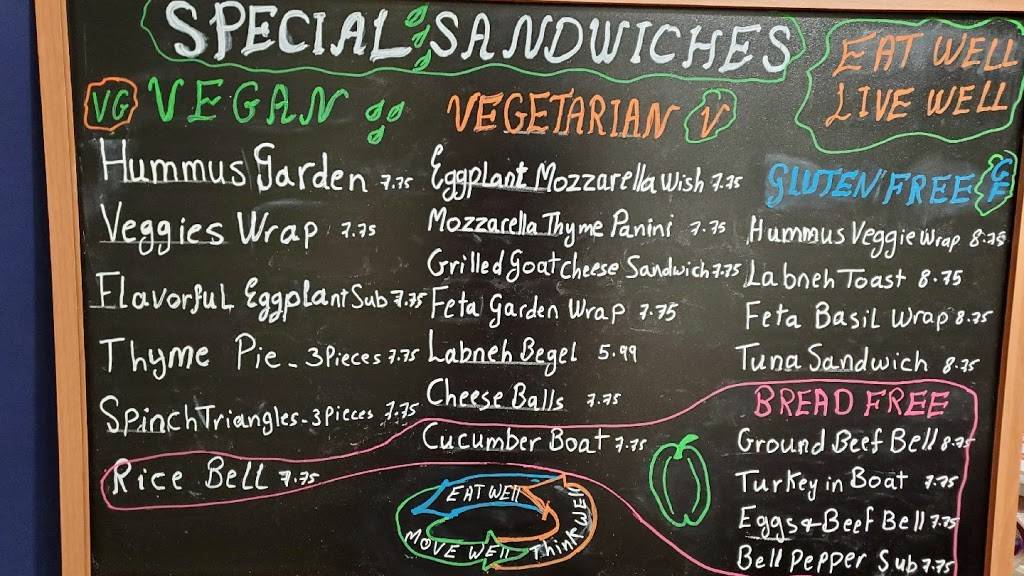 SPECIAL SANDWICHES
EAT WELL
LIVE WELL
VG VEGAN
Hummus Garden 7.75
Veggies Wrap 7.75
Flavorful Eggplant Sub 7.75
Thyme Pie - 3 Pieces 7.75
Spinch Triangles - 3 Pieces 7.75
Rice Bell 7.75
VEGETARIAN V
Eggplant Mozzarella Wish 7.75
Mozzarella Thyme Panini 7.75
Grilled goat cheese Sandwich 7.75
Feta Garden Wrap 7.75
Labneh Begel 5.99
Cheese Balls 7.75
Cucumber Boat 7.75
GLUTEN FREE GF
Hummus Veggie Wrap 8.75
Labneh Toast 8.75
Feta Basil Wrap 8.75
Tuna Sandwich 8.75
BREAD FREE
Ground Beef Bell 8.75
Turkey in Boat 7.75
Eggs & Beef Bell 7.75
Bell Pepper Sub 7.75
EAT WEll
Think WEll
MOVE WEll